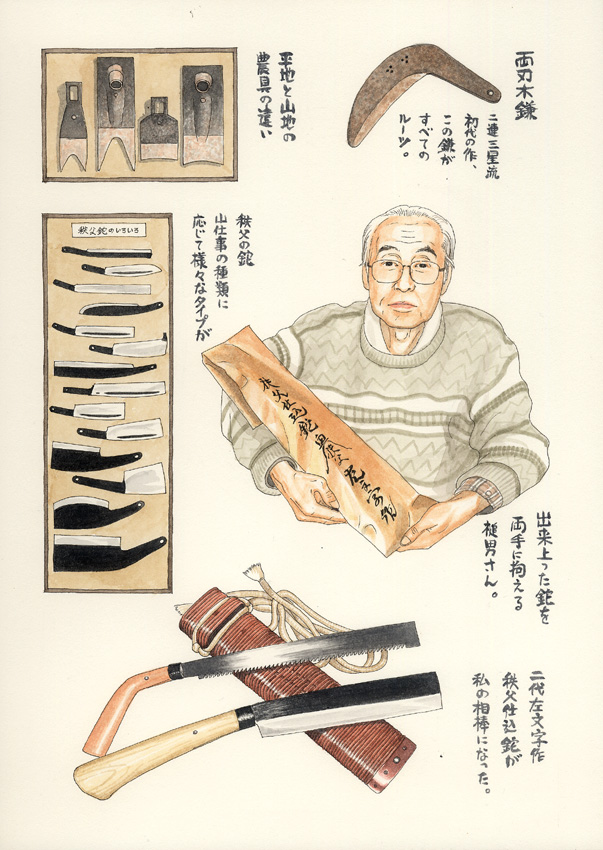 両刃木鎌
二連三星流
初代の作、
この鎌が
すべての
ルーツ。
平地と山地の
農具の違い
秩父鉈のいろいろ
秩父の鉈
山仕事の種類に
応じて様々なタイプが
秩父仕込鉈
出来上った鉈を
両手に抱える
さん。
二代左文字作
秩父仕込鉈が
私の相棒になった。